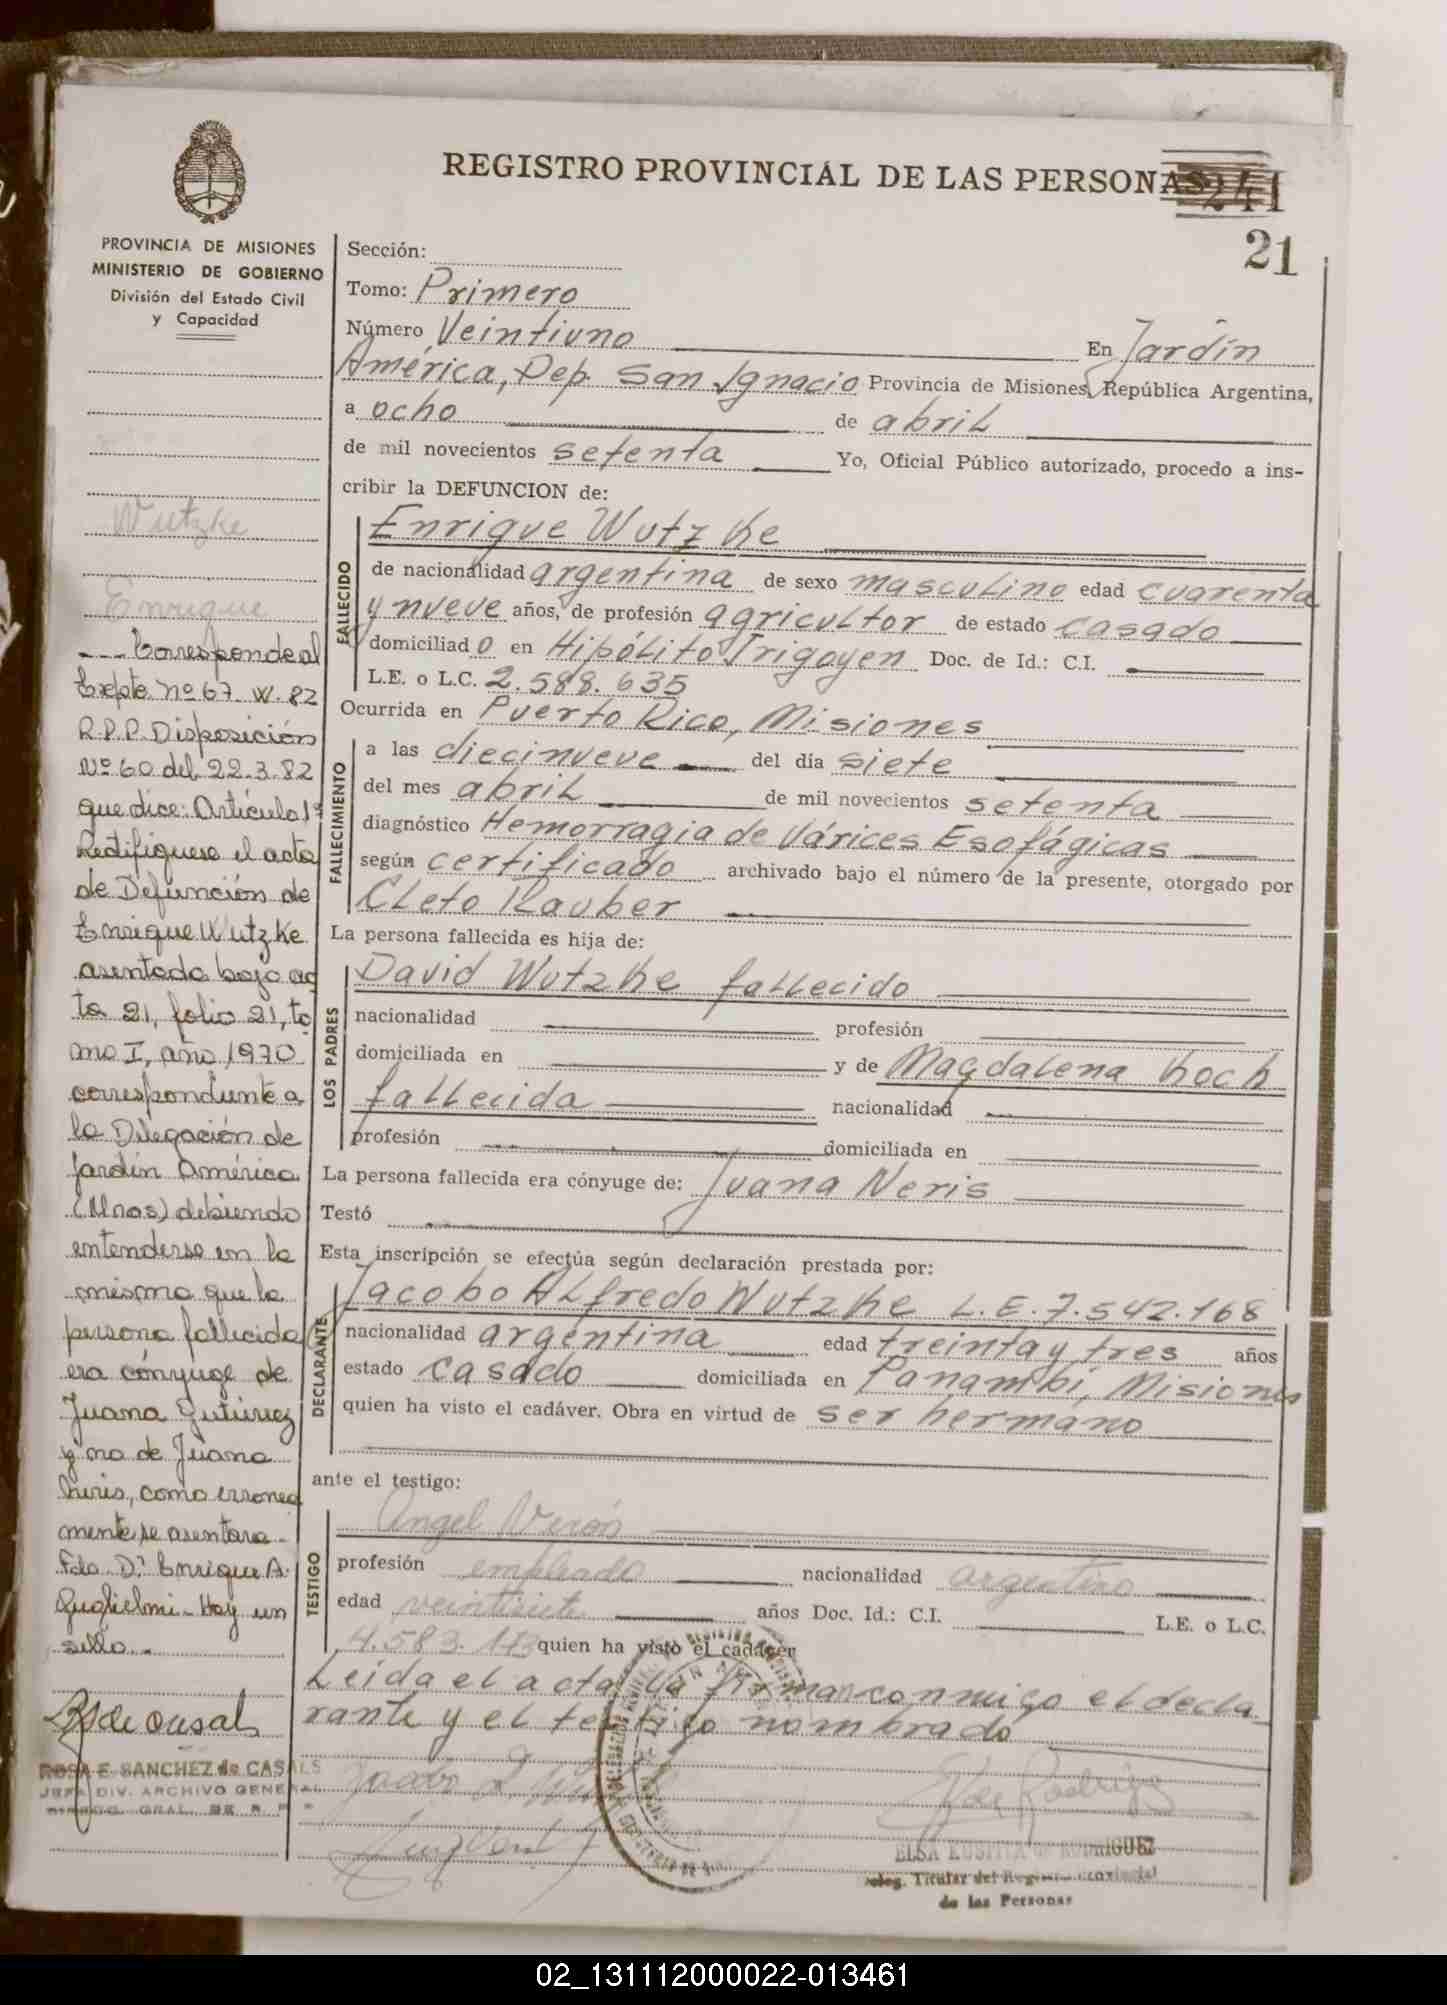 REGISTRO PROVINCIAL DE LAS PERSONAS
241
21
PROVINCIA DE MISIONES
MINISTERIO DE GOBIERNO
División del Estado Civil
y Capacidad
Wutzke
Enrique
Corresponde al
Expte nº 67. W. 82
R.P.P. Disposición
Nº 60 del 22.3.82
que dice: Artículo 1º
Rectifíquese el acta
de Defunción de
Enrique Wutzke
asentada bajo ac
ta 21, folio 21, to
mo I, año 1970
correspondiente a
la Delegación de
Jardín América
(Mnes) debiendo
entenderse en la
misma que la
persona fallecida
era cónyuge de
Juana Gutiérrez
y no de Juana
Neris, como erronea
mente se asentara.
Fdo. Dr. Enrique A.
Guglielmi - Hay un
sello.-
ROSA E. SANCHEZ de CASALS
JEFA DIV. ARCHIVO GENERAL
Sección:
Tomo: Primero
Número Veintiuno En Jardín
América, Dep. San Ignacio Provincia de Misiones, República Argentina,
a ocho de abril
de mil novecientos setenta Yo, Oficial Público autorizado, procedo a ins-
cribir la DEFUNCION de:
FALLECIDO
Enrique Wutzke
de nacionalidad argentina de sexo masculino edad cuarenta
y nueve años, de profesión agricultor de estado casado
domiciliado en Hipólito Irigoyen Doc. de Id.: C.I.
L.E. o L.C. 2.588.635
Ocurrida en Puerto Rico, Misiones
FALLECIMIENTO
a las diecinueve del día siete
del mes abril de mil novecientos setenta
diagnóstico Hemorragia de Várices Esofágicas
según certificado archivado bajo el número de la presente, otorgado por
Cleto Rauber
La persona fallecida es hija de:
LOS PADRES
David Wutzke fallecido
nacionalidad profesión
domiciliada en y de Magdalena Koch
fallecida nacionalidad
profesión domiciliada en
La persona fallecida era cónyuge de: Juana Neris
Testó
Esta inscripción se efectúa según declaración prestada por:
DECLARANTE
Jacobo Alfredo Wutzke L.E. 7.542.168
nacionalidad argentina edad treinta y tres años
estado casado domiciliada en Panambí, Misiones
quien ha visto el cadáver. Obra en virtud de ser hermano
ante el testigo:
TESTIGO
Angel Verón
profesión empleado nacionalidad argentino
edad veintisiete años Doc. Id.: C.I. L.E. o L.C.
4.583.173 quien ha visto el cadáver
Leída el acta la firman conmigo el decla-
rante y el testigo nombrado
de RODRIGUEZ
Deleg. Titular del Registro Provincial
de las Personas
02_131112000022-013461